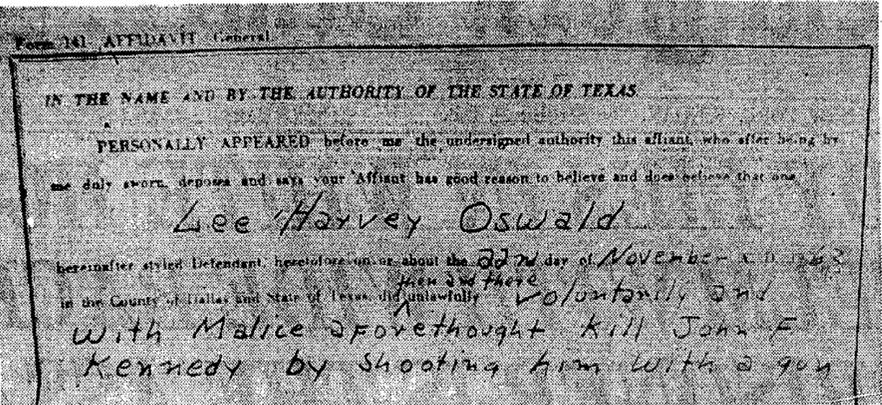 Form 141 AFFIDAVIT General
IN THE NAME AND BY THE AUTHORITY OF THE STATE OF TEXAS
PERSONALLY APPEARED before me the undersigned authority this affiant, who after being by
me duly sworn, deposes and says your Affiant has good reason to believe and does believe that one
Lee Harvey Oswald
hereinafter styled Defendant, heretofore on or about the 22nd day of November A.D. 1963
then and there
in the County of Dallas and State of Texas, did unlawfully voluntarily and
with Malice aforethought kill John F
Kennedy by shooting him with a gun